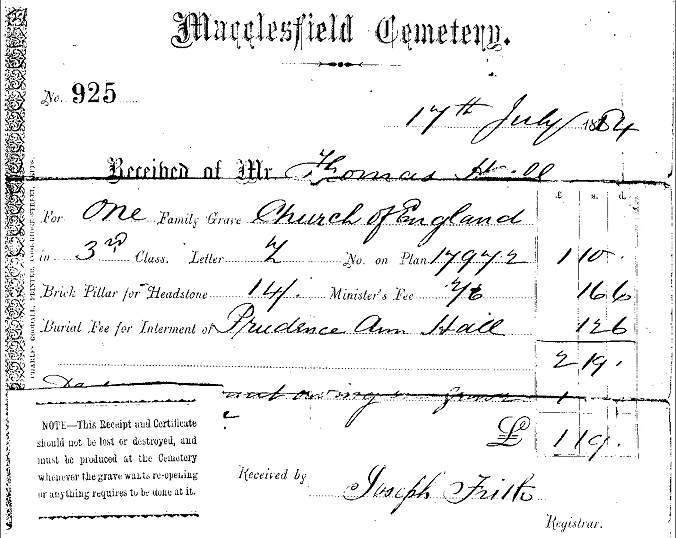 Macclesfield Cemetery.
No. 925
17th July 1884
Received of Mr Thomas Hall
£ s. d.
For One Family Grave Church of England
in 3rd Class. Letter Z No. on Plan 17972 1 10 .
Brick Pillar for Headstone 14/. Minister's Fee 2/6 16 6
Burial Fee for Interment of Prudence Ann Hall 12 6
2 19 .
owing on grave 1
£ 1 19 .
NOTE—This Receipt and Certificate
should not be lost or destroyed, and
must be produced at the Cemetery
whenever the grave wants re-opening
or anything requires to be done at it.
Received by Joseph Frith
Registrar.
CHARLES GOODALL, PRINTER, COOKRIDGE STREET, LEEDS.